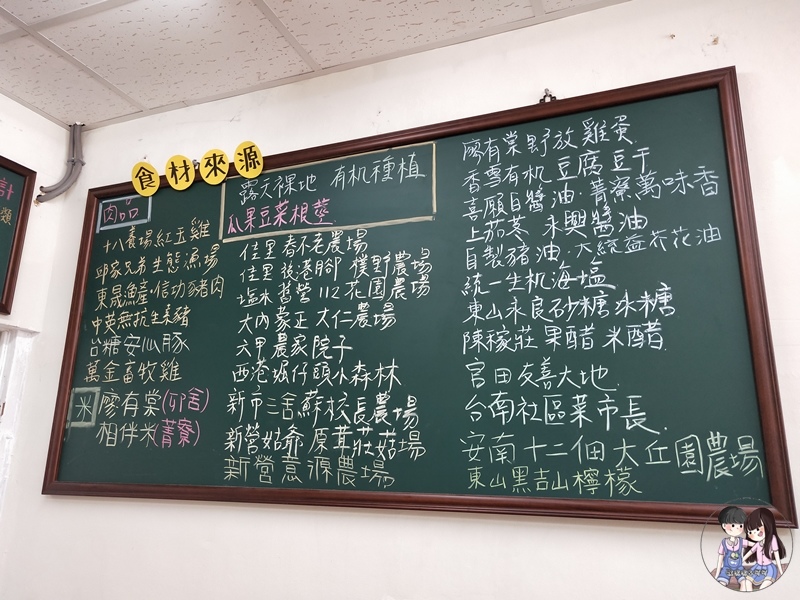 食材來源
肉品
十八養場紅玉雞
邱家兄弟生態漁場
東晟漁產·信功豬肉
中英無抗生素豬
台糖安心豚
萬金畜牧雞
米 廖有棠(卯舍)
相伴米(菁寮)
露天裸地 有机種植
瓜果豆菜根莖
佳里春不老農場
佳里後港腳 樸野農場
塩水舊營112花園農場
大內蒙正 大仁農場
六甲農家院子
西港堀仔頭小森林
新市三舍蘇校長農場
新營姑爺 原茸莊菇場
新營意源農場
廖有棠野放雞蛋
香雪有机 豆腐豆干
喜願白醬油·菁寮萬味香
上茄苳 永興醬油
自製豬油·大統益芥花油
統一生机海塩
東山永良砂糖 冰糖
陳稼莊 果醋 米醋
官田友善大地
台南社區菜市長
安南十二佃大丘園農場
東山黑吉山檸檬
計
類